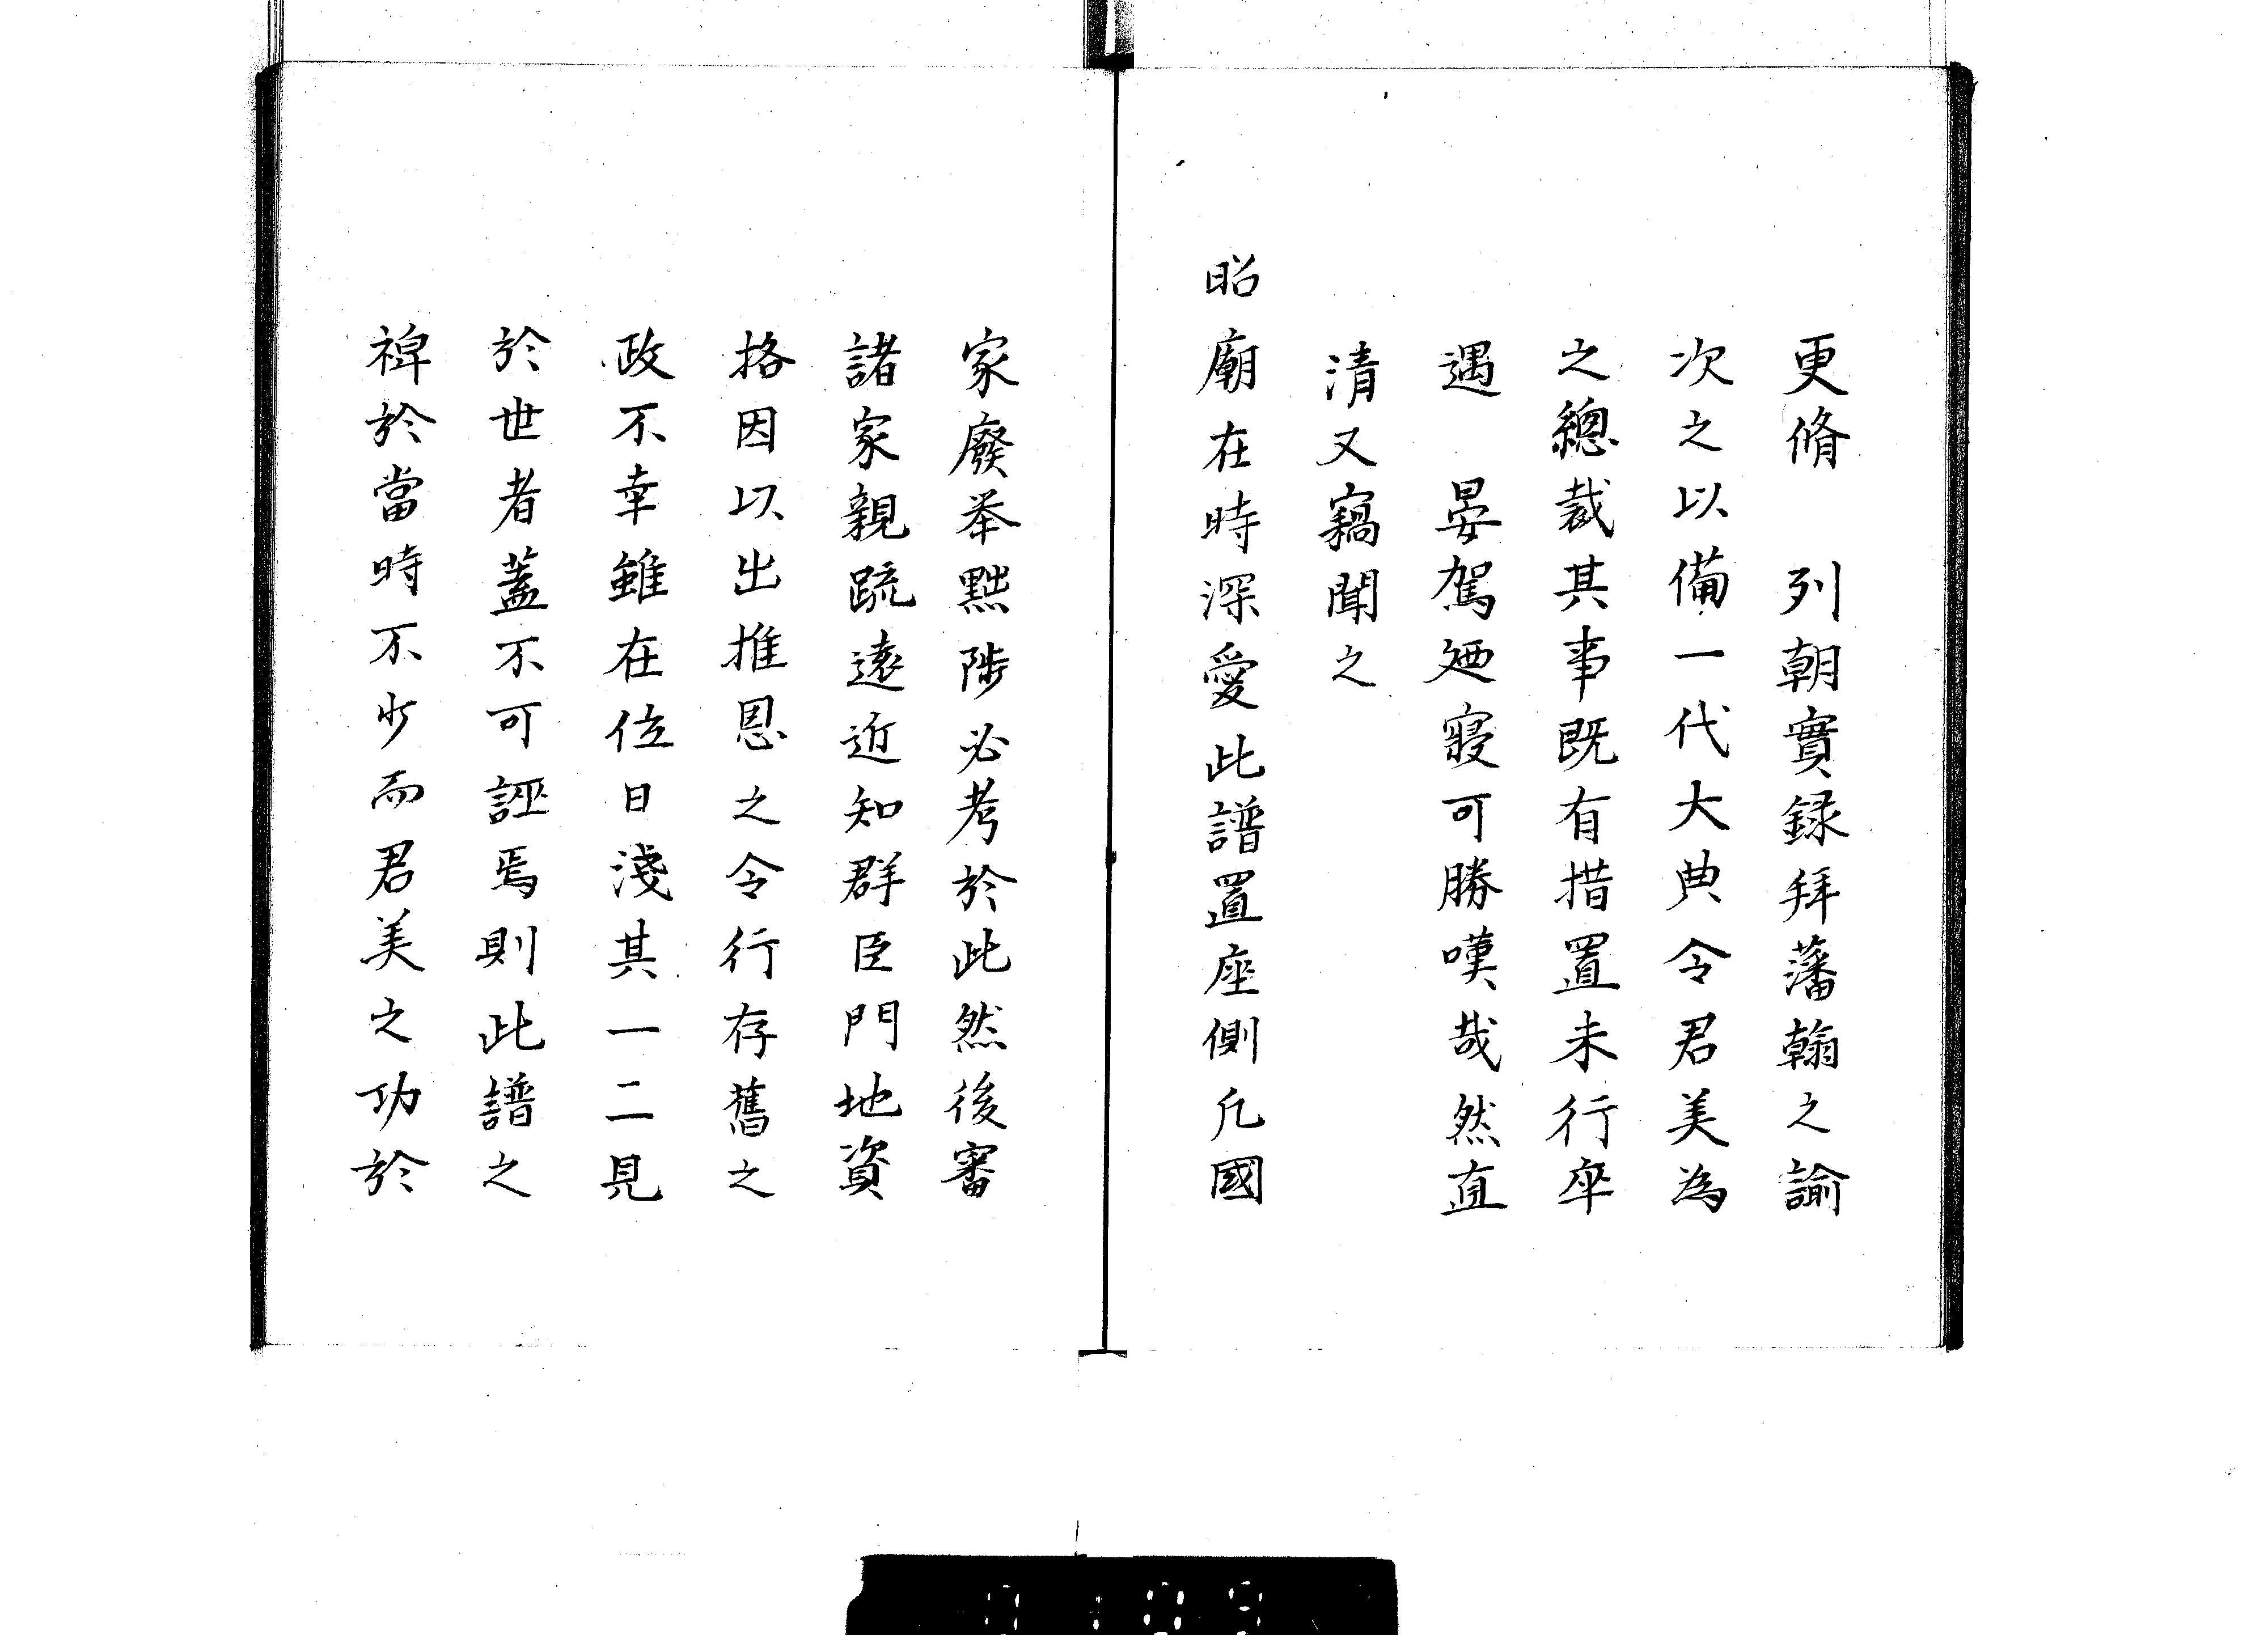 更脩　列朝實録拜藩翰之諭
次之以備一代大典令君美為
之總裁其事既有措置未行卒
遇　晏駕廼寢可勝嘆哉然直
清又竊聞之
昭廟在時深愛此譜置座側凢國
家廢举黜陟必考於此然後審
諸家親疏遠近知群臣門地資
格因以出推恩之令行存舊之
政不幸雖在位日淺其一二見
於世者蓋不可誣焉則此譜之
裨於當時不少而君美之功於